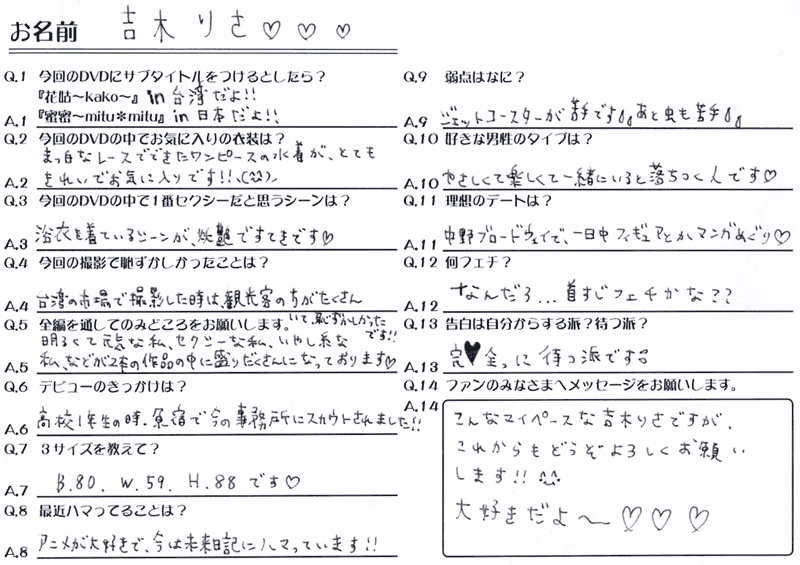 お名前 吉木りさ♡♡♡
Q.1 今回のDVDにサブタイトルをつけるとしたら？
『花咕～kako～』in台湾だよ!!
A.1 『蜜蜜～mitu＊mitu』in日本だよ!!
Q.2 今回のDVDの中でお気に入りの衣装は？
まっ白なレースでできたワンピースの水着が、とても
A.2 きれいでお気に入りです!!、(^^)、
Q.3 今回のDVDの中で1番セクシーだと思うシーンは？
A.3 浴衣を着ているシーンが、妖艶ですてきです♡
Q.4 今回の撮影で恥ずかしかったことは？
A.4 台湾の市場で撮影した時は、観光客の方がたくさん
いて、恥ずかしかった
です!!
Q.5 全編を通してのみどころをお願いします。
明るくて元気な私、セクシーな私、いやし系な
A.5 私、などが2本の作品の中に盛りだくさんになっております♡
Q.6 デビューのきっかけは？
A.6 高校1年生の時、原宿で今の事務所にスカウトされました!!
Q.7 3サイズを教えて？
A.7 B.80. W.59. H.88です♡
Q.8 最近ハマってることは？
A.8 アニメが大好きで、今は未来日記にハマっています!!
Q.9 弱点はなに？
A.9 ジェットコースターが苦手です あと虫も苦手
Q.10 好きな男性のタイプは？
A.10 やさしくて楽しくて一緒にいると落ちつく人です♡
Q.11 理想のデートは？
A.11 中野ブロードウェイで、一日中フィギュアとかマンガめぐり♡
Q.12 何フェチ？
A.12 なんだろ...首すじフェチかな??
Q.13 告白は自分からする派？待つ派？
A.13 完♥全っに待つ派です
Q.14 ファンのみなさまへメッセージをお願いします。
A.14 こんなマイペースな吉木りさですが、
これからもどうぞよろしくお願い
します!! ^^
大好きだよ～♡♡♡